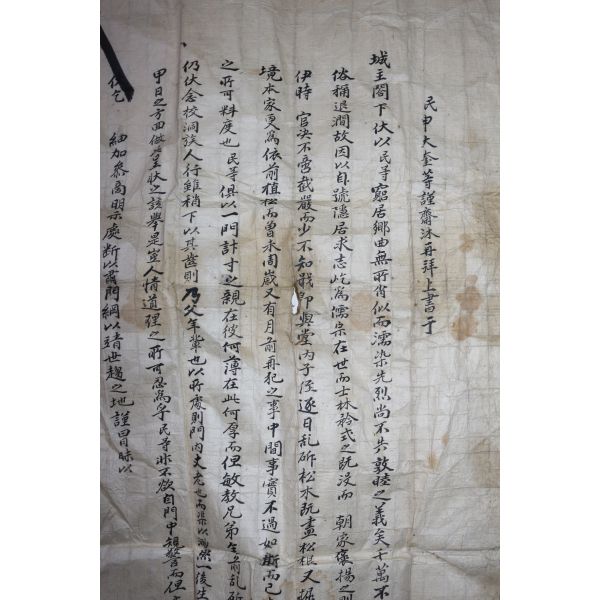 民申大奎等謹齋沐再拜上書于
城主閤下伏以民等窮居鄉曲無所肖似而濡染先烈尚不失敦睦之義矣千萬不
俗稱退澗故因以自號隱居求志屹爲儒宗在世而士林矜式之旣沒而 朝家褒揚之則
伊時 官決不啻截嚴而少不知戢卽與堂內子侄逐日乱斫松木旣盡松根又掘
境本家更爲依前植松而曾未周歲又有月前再犯之事中間事實不過如斯而已
之所可料度也民等俱以一門計寸之親在彼何薄在此何厚而但敏教兄弟生前乱斫
仍伏念校洞族人行雖稍下以其齒則乃父年輩也以所處則門內丈老也而渠以渺然一後生
甲日之方面做呈狀之該舉是豈人情道理之所可忍爲乎民等非不欲自門中矩警而但
伏乞 細加叅商明決處断以肅門綱以靖世趨之地謹冒昧以